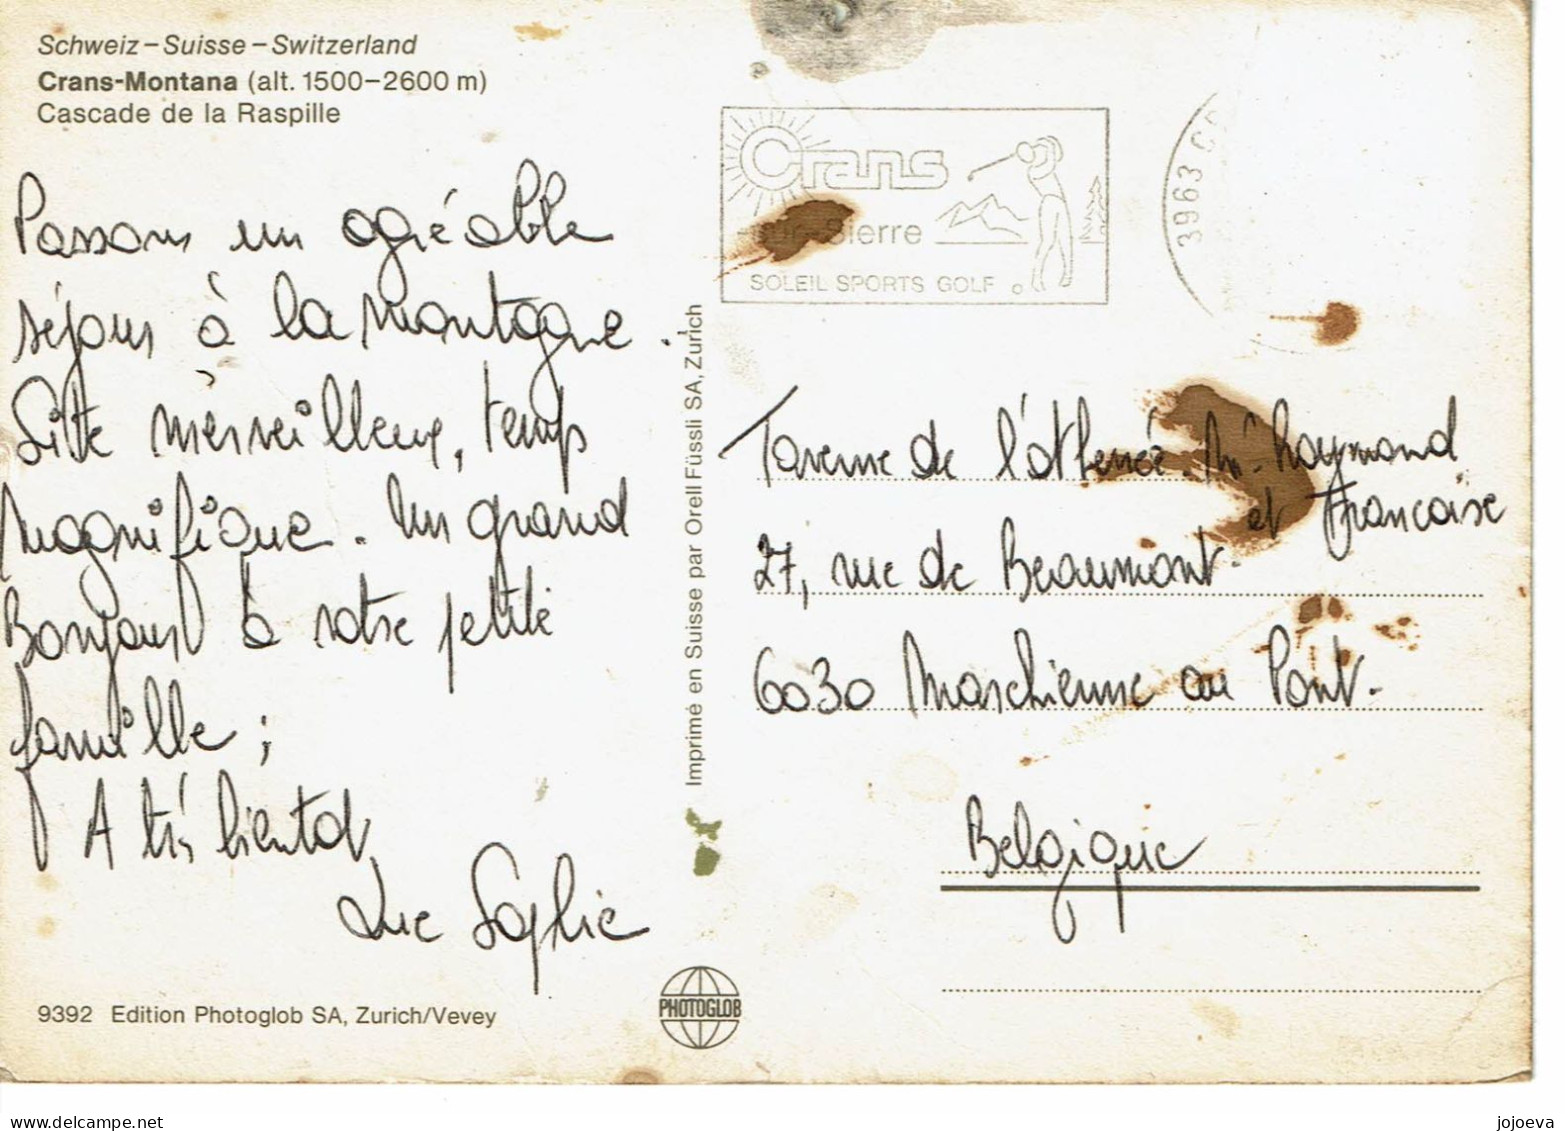 Schweiz – Suisse – Switzerland
Crans-Montana (alt. 1500–2600 m)
Cascade de la Raspille
Passons un agréable
séjour à la montagne.
Site merveilleux, temps
magnifique. Un grand
Bonjour à votre petite
famille ;
A très bientot,
Luc Sophie
9392 Edition Photoglob SA, Zurich/Vevey
PHOTOGLOB
Imprimé en Suisse par Orell Füssli SA, Zurich
Crans
sur-Sierre
SOLEIL SPORTS GOLF
3963 C
Taverne de l'athenée. Mr Raymond
et Francoise
27, rue de Beaumont.
6030 Marchienne au Pont.
Belgique
jojoeva